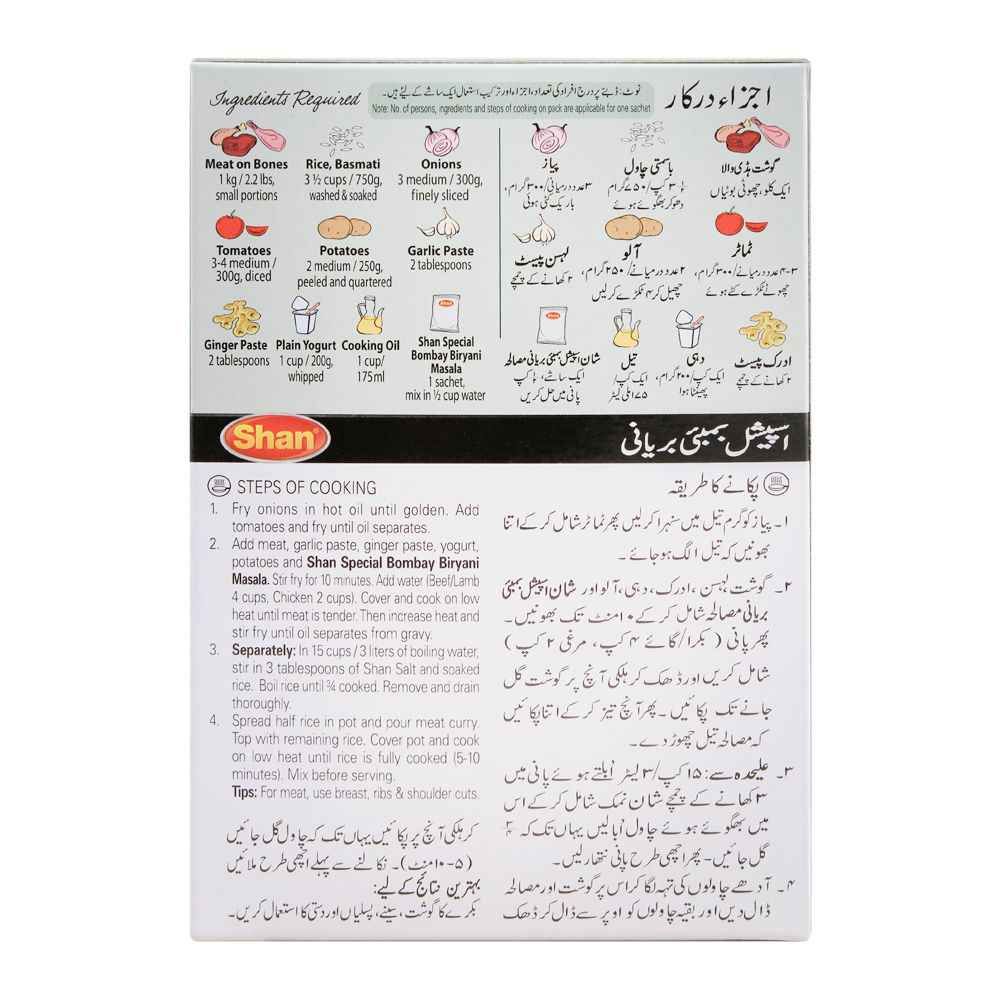 Ingredients Required
نوٹ: ڈبے پر درج افراد کی تعداد، اجزاء اور ترکیب استعمال ایک ساشے کے لیئے ہیں۔
Note: No. of persons, ingredients and steps of cooking on pack are applicable for one sachet
اجزاء درکار
Meat on Bones
1 kg / 2.2 lbs,
small portions
Rice, Basmati
3 ½ cups / 750g,
washed & soaked
Onions
3 medium / 300g,
finely sliced
Tomatoes
3-4 medium /
300g, diced
Potatoes
2 medium / 250g,
peeled and quartered
Garlic Paste
2 tablespoons
Ginger Paste
2 tablespoons
Plain Yogurt
1 cup / 200g,
whipped
Cooking Oil
1 cup/
175ml
Shan
Shan Special
Bombay Biryani
Masala
1 sachet,
mix in ½ cup water
گوشت ہڈی والا
ایک کلو، چھوٹی بوٹیاں
باسمتی چاول
۳ ½ کپ/۷۵۰ گرام،
دھو کر بھگوئے ہوئے
پیاز
۳ عدد درمیانی/۳۰۰ گرام،
باریک کٹی ہوئی
ٹماٹر
۳-۴ عدد درمیانے/۳۰۰ گرام،
چھوٹے ٹکڑے کٹے ہوئے
آلو
۲ عدد درمیانے/۲۵۰ گرام،
چھیل کر ۴ ٹکڑے کر لیں
لہسن پیسٹ
۲ کھانے کے چمچے
ادرک پیسٹ
۲ کھانے کے چمچے
دہی
ایک کپ/۲۰۰ گرام،
پھینٹا ہوا
تیل
ایک کپ/
۱۷۵ ملی لیٹر
Shan
شان اسپیشل بمبئی بریانی مصالحہ
ایک ساشے، ½ کپ
پانی میں حل کریں
Shan
اسپیشل بمبئی بریانی
STEPS OF COOKING
1. Fry onions in hot oil until golden. Add
tomatoes and fry until oil separates.
2. Add meat, garlic paste, ginger paste, yogurt,
potatoes and Shan Special Bombay Biryani
Masala. Stir fry for 10 minutes. Add water (Beef/Lamb
4 cups, Chicken 2 cups). Cover and cook on low
heat until meat is tender. Then increase heat and
stir fry until oil separates from gravy.
3. Separately: In 15 cups / 3 liters of boiling water,
stir in 3 tablespoons of Shan Salt and soaked
rice. Boil rice until ¾ cooked. Remove and drain
thoroughly.
4. Spread half rice in pot and pour meat curry.
Top with remaining rice. Cover pot and cook
on low heat until rice is fully cooked (5-10
minutes). Mix before serving.
Tips: For meat, use breast, ribs & shoulder cuts.
پکانے کا طریقہ
۱۔ پیاز کو گرم تیل میں سنہرا کر لیں پھر ٹماٹر شامل کر کے اتنا
بھونیں کہ تیل الگ ہو جائے۔
۲۔ گوشت، لہسن، ادرک، دہی، آلو اور شان اسپیشل بمبئی
بریانی مصالحہ شامل کر کے ۱۰ منٹ تک بھونیں۔
پھر پانی ( بکرا/گائے ۴ کپ، مرغی ۲ کپ )
شامل کریں اور ڈھک کر ہلکی آنچ پر گوشت گل
جانے تک پکائیں۔ پھر آنچ تیز کر کے اتنا پکائیں
کہ مصالحہ تیل چھوڑ دے۔
۳۔ علیحدہ سے: ۱۵ کپ/۳ لیٹر اُبلتے ہوئے پانی میں
۳ کھانے کے چمچے شان نمک شامل کر کے اس
میں بھگوئے ہوئے چاول اُبالیں یہاں تک کہ ¾
گل جائیں۔ پھر اچھی طرح پانی نتھار لیں۔
۴۔ آدھے چاولوں کی تہہ لگا کر اس پر گوشت اور مصالحہ
ڈال دیں اور بقیہ چاولوں کو اوپر سے ڈال کر ڈھک
کر ہلکی آنچ پر پکائیں یہاں تک کہ چاول گل جائیں
(۵-۱۰ منٹ)۔ نکالنے سے پہلے اچھی طرح ملائیں
بہترین نتائج کے لیے:
بکرے کا گوشت، سینے، پسلیاں اور دستی کا استعمال کریں۔